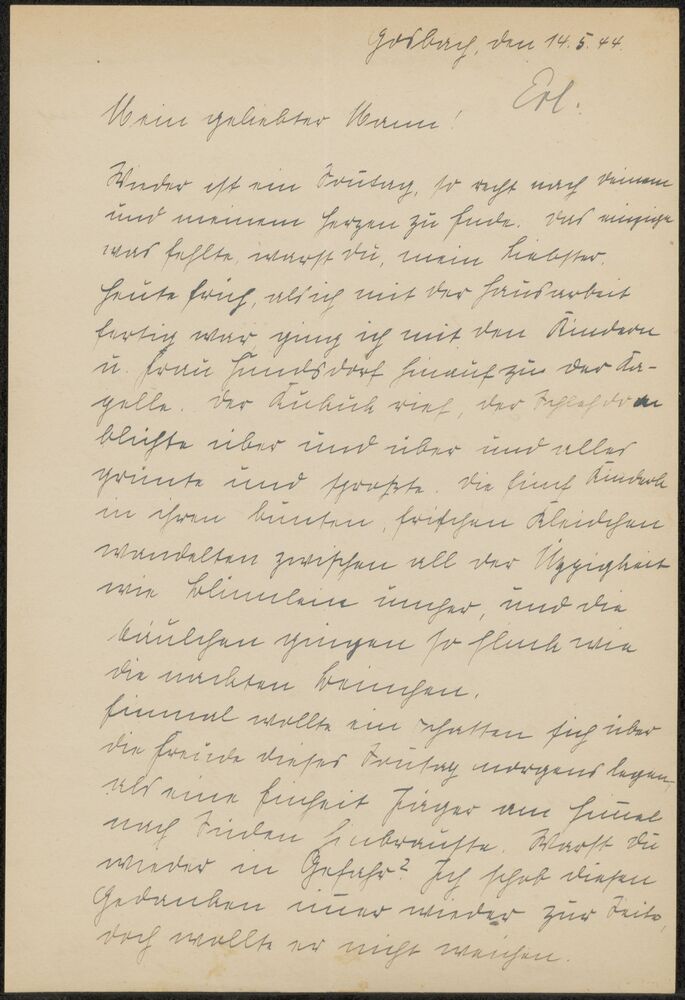 Gosbach, den 14.5.44.
Erl.
Mein geliebter Mann!
Wieder ist ein Sonntag, so recht nach deinem
und meinem Herzen zu Ende. Das einzige
was fehlte, warst du, mein Liebster.
Heute früh, als ich mit der Hausarbeit
fertig war, ging ich mit den Kindern
u. Frau Hundsdorf hinauf zu der Ka-
pelle. Der Kukuk rief, der Schlehdorn
blühte über und über und alles
grünte und sproßte. Die fünf Kinderle
in ihren bunten, frischen Kleidchen
wandelten zwischen all der Üppigkeit
wie Blümlein umher, und die
Mäulchen gingen so flink wie
die nackten Beinchen.
Einmal wollte ein Schatten sich über
die Freude dieses Sonntag morgens legen,
als eine Einheit Jäger am Himel
nach Süden hinbrauste. Warst du
wieder in Gefahr? Ich schob diesen
Gedanken imer wieder zur Seite,
doch wollte er nicht weichen.